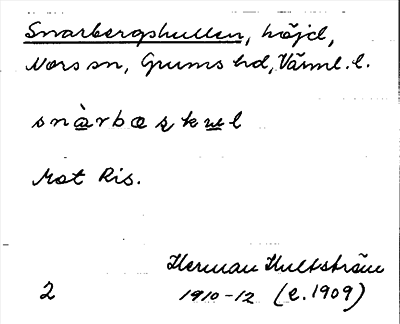 Snarbergshullen, höjd,
Nors sn, Grums hd, Värml. l.
Mot Ris.
Herman Hultström
2 1910-12 (e. 1909)